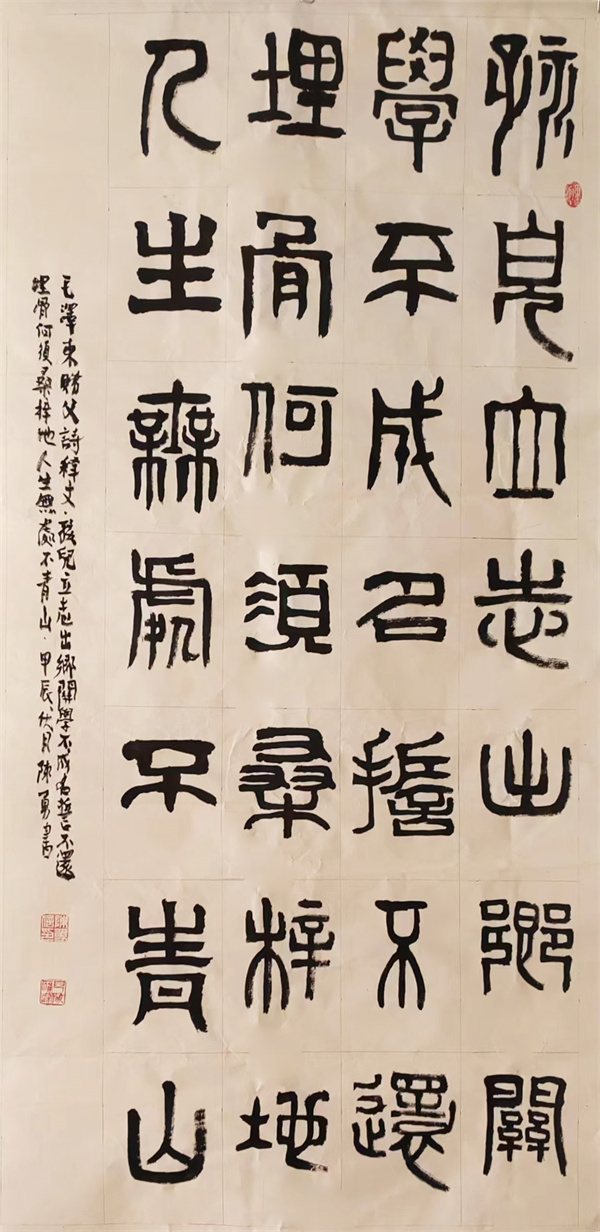 孩兒立志出鄉關
學不成名誓不還
埋骨何須桑梓地
人生無處不青山
毛澤東贈父詩釋文·孩兒立志出鄉關學不成名誓不還
埋骨何須桑梓地人生無處不青山·甲辰伏月陳勇書